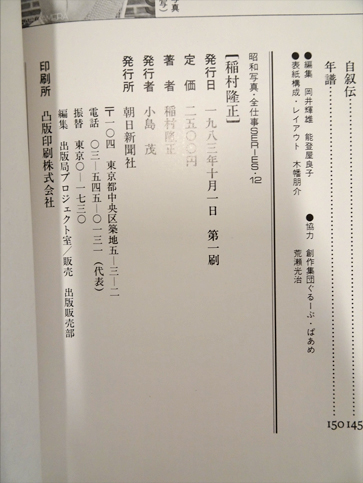 自叙伝 145
年譜 150
●編集 岡井輝雄 能登屋良子 ●協力 創作集団ぐるーぷ・ぱあめ
●表紙構成・レイアウト 木幡朋介 荒瀬光治
昭和写真・全仕事SERIES・12
[稲村隆正]
発行日 一九八三年十月一日 第一刷
定価 二五〇〇円
著者 稲村隆正
発行者 小島 茂
発行所 朝日新聞社
〒一〇四 東京都中央区築地五―三―二
電話 〇三―五四五―〇一三一(代表)
振替 東京〇―一七三〇
編集 出版局プロジェクト室/販売 出版販売部
印刷所 凸版印刷株式会社